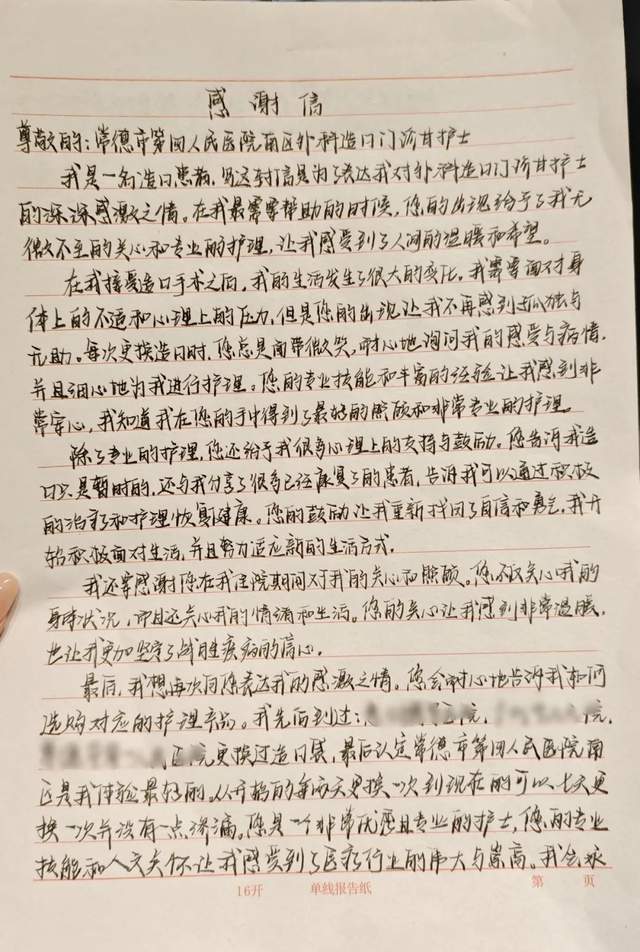 感谢信
尊敬的：常德市第四人民医院南区外科造口门诊甘护士
我是一名造口患者，写这封信是为了表达我对外科造口门诊甘护士
的深深感激之情。在我最需要帮助的时候，您的出现给予了我无
微不至的关心和专业的护理，让我感受到了人间的温暖和希望。
在我接受造口手术之后，我的生活发生了很大的变化。我需要面对身
体上的不适和心理上的压力，但是您的出现让我不再感到孤独与
无助。每次更换造口时，您总是面带微笑，耐心地询问我的感受与病情，
并且细心地为我进行护理。您的专业技能和丰富的经验让我感到非
常安心，我知道我在您的手中得到了最好的照顾和非常专业的护理。
除了专业的护理，您还给予我很多心理上的支持与鼓励。您告诉我造
口只是暂时的，还与我分享了很多已经康复了的患者，告诉我可以通过积极
的治疗和护理恢复健康。您的鼓励让我重新找回了自信和勇气，我开
始积极面对生活，并且努力适应新的生活方式。
我还要感谢您在我住院期间对我的关心和照顾。您不仅关心我的
身体状况，而且还关心我的情绪和生活。您的关心让我感到非常温暖，
也让我更加坚定了战胜疾病的信心。
最后，我想再次向您表达我的感激之情。您会耐心地告诉我如何
选购对应的护理产品。我先后到过： 院， 院，
医院更换过造口袋，最后认定常德市第四人民医院南
区是我体验最好的。从开始的每两天更换一次到现在的可以七天更
换一次并没有一点渗漏。您是一个非常优秀且专业的护士，您的专业
技能和人文关怀让我感受到了医疗行业的伟大与崇高。我会永
16开 单线报告纸 第 页